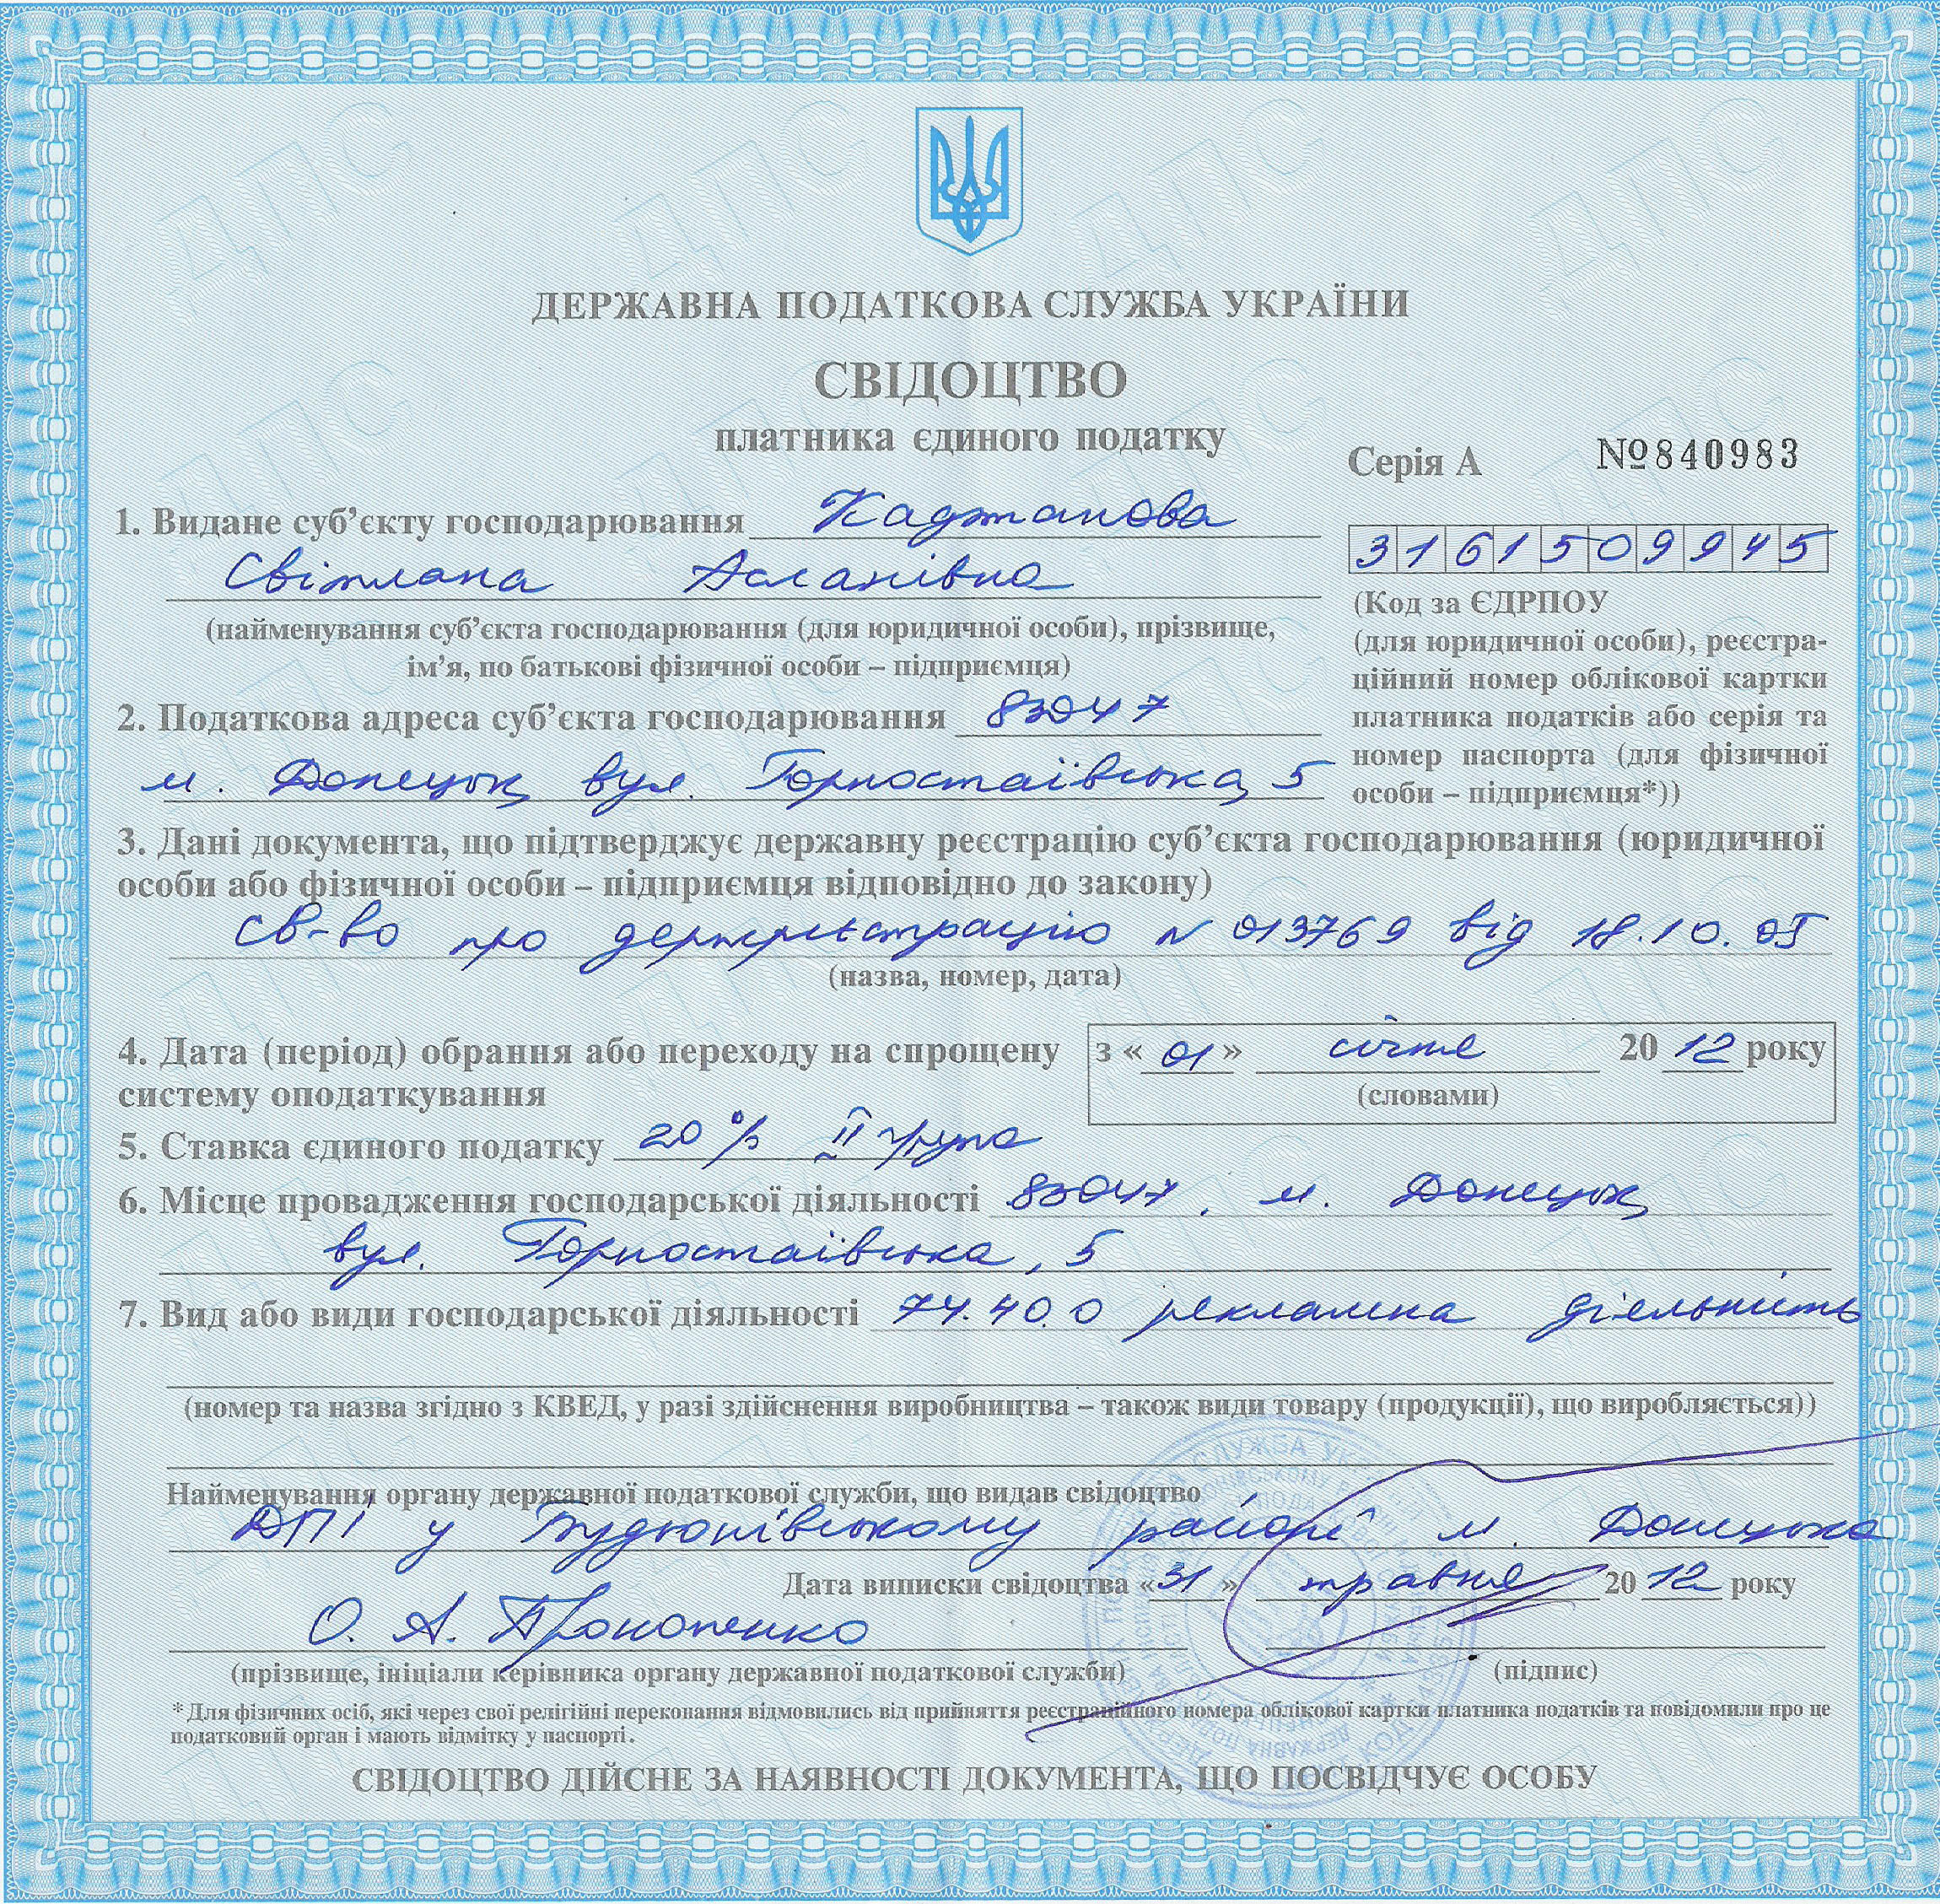 ДЕРЖАВНА ПОДАТКОВА СЛУЖБА УКРАЇНИ
СВІДОЦТВО
платника єдиного податку
Серія А №840983
1. Видане суб’єкту господарювання Каджанова
Світлана Асланівна
3161509945
(найменування суб’єкта господарювання (для юридичної особи), прізвище,
ім’я, по батькові фізичної особи – підприємця)
(Код за ЄДРПОУ
(для юридичної особи), реєстра-
ційний номер облікової картки
платника податків або серія та
номер паспорта (для фізичної
особи – підприємця*))
2. Податкова адреса суб’єкта господарювання 83047
м. Донецьк, вул. Горностаївська, 5
3. Дані документа, що підтверджує державну реєстрацію суб’єкта господарювання (юридичної
особи або фізичної особи – підприємця відповідно до закону)
св-во про держреєстрацію N 013769 від 18.10.05
(назва, номер, дата)
4. Дата (період) обрання або переходу на спрощену
систему оподаткування
з «01» січня 2012 року
(словами)
5. Ставка єдиного податку 20% II група
6. Місце провадження господарської діяльності 83047, м. Донецьк,
вул. Горностаївська, 5
7. Вид або види господарської діяльності 74.40.0 рекламна діяльність
(номер та назва згідно з КВЕД, у разі здійснення виробництва – також види товару (продукції), що виробляється))
Найменування органу державної податкової служби, що видав свідоцтво
ДПІ у Будьонівському районі м. Донецька
Дата виписки свідоцтва «31» травня 2012 року
О. А. Прокопенко
(прізвище, ініціали керівника органу державної податкової служби) (підпис)
* Для фізичних осіб, які через свої релігійні переконання відмовились від прийняття реєстраційного номера облікової картки платника податків та повідомили про це
податковий орган і мають відмітку у паспорті.
СВІДОЦТВО ДІЙСНЕ ЗА НАЯВНОСТІ ДОКУМЕНТА, ЩО ПОСВІДЧУЄ ОСОБУ